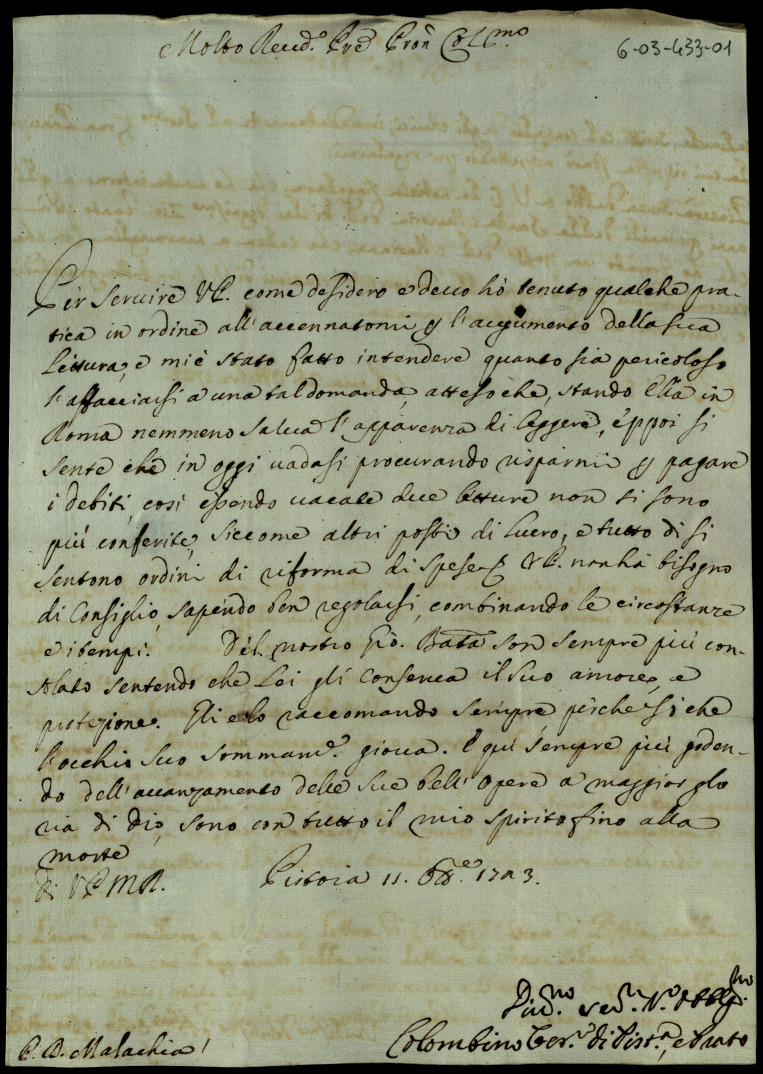 Molto Rend.º Pre Pron Col.mo
6-03-433-01
Per servire VP. come desidero e devo hò tenuto qualche pra-
tica in ordine all'accennatomi p l'augumento della sua
Lettura, e mi è stato fatto intendere quanto sia pericoloso
l'affacciarsi a una tal domanda, atteso che, stando Ella in
Roma nemmeno salva l'apparenza di leggere, e poi si
sente che in oggi vadasi procurando risparmi p pagare
i debiti, così essendo vacate due letture non si sono
più conferite, siccome altri posti di lucro, e tutto dì si
sentono ordini di riforma di spese. VP. non hà bisogno
di Consiglio, sapendo ben regolarsi, combinando le circostanze
e i tempi. Del nostro Gio. Batta son sempre più con-
solato sentendo che Lei gli conserva il suo amore, e
protezione. Gli e lo raccomando sempre perche si che
l'occhio suo sommam.e giova. E quì sempre più goden-
do dell'avanzamento delle sue bell'opere a maggior glo
ria di Dio, sono con tutto il mio spirito fino alla
morte
Di VPMR. Pistoia 11. 8bre 1703.
Div.mo ser.e Obblig.mo
Colombino Ves.o di Pist.a, e Prato
P. D. Malachia